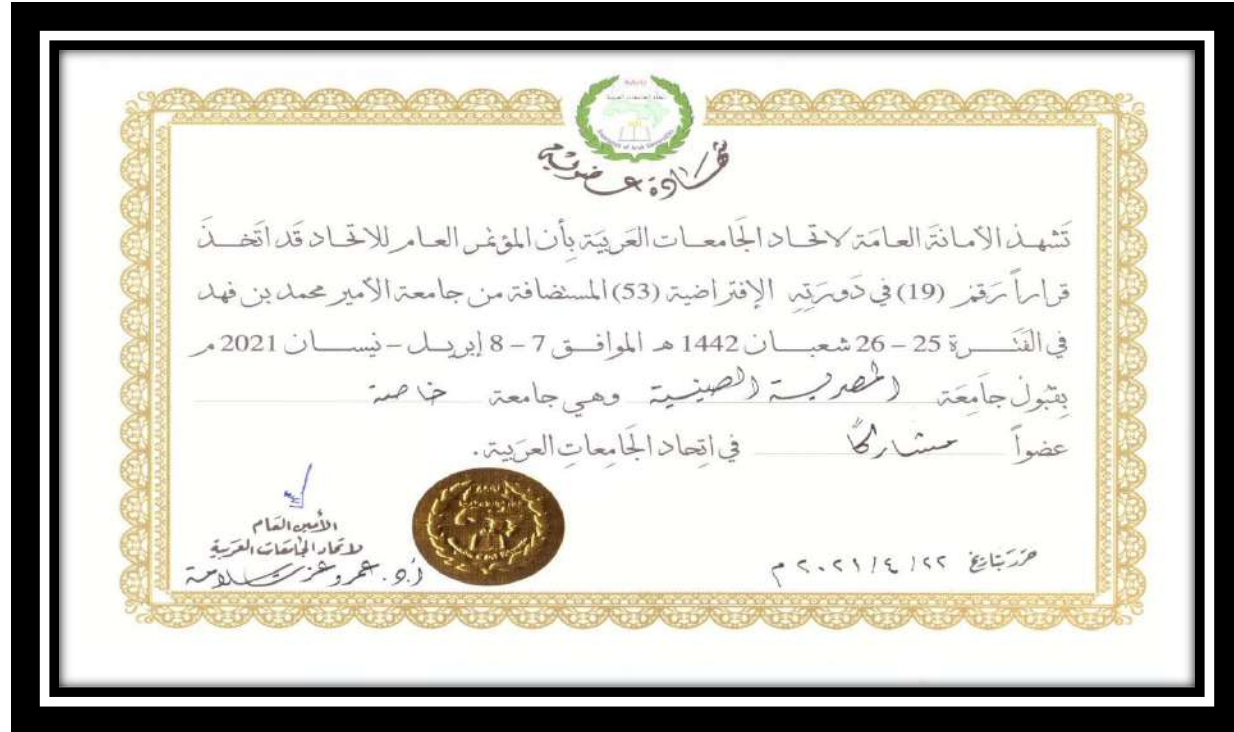 اتحاد الجامعات العربية
Association of Arab Universities
شهادة عضوية
تَشهد الأمانة العامة لاتحاد الجامعات العربية بأن المؤتمر العام للاتحاد قد اتخذ
قراراً رقم (19) في دورته الإفتراضية (53) المستضافة من جامعة الأمير محمد بن فهد
في الفترة 25 – 26 شعبان 1442 هـ الموافق 7 – 8 إبريل – نيسان 2021 م
بقبول جامعة المصرية الصينية وهي جامعة خاصة
عضواً مشاركاً في اتحاد الجامعات العربية.
الأمين العام
لاتحاد الجامعات العربية
أ.د. عمرو عزت سلامة
حرر بتاريخ ٢٢/٤/٢٠٢١ م